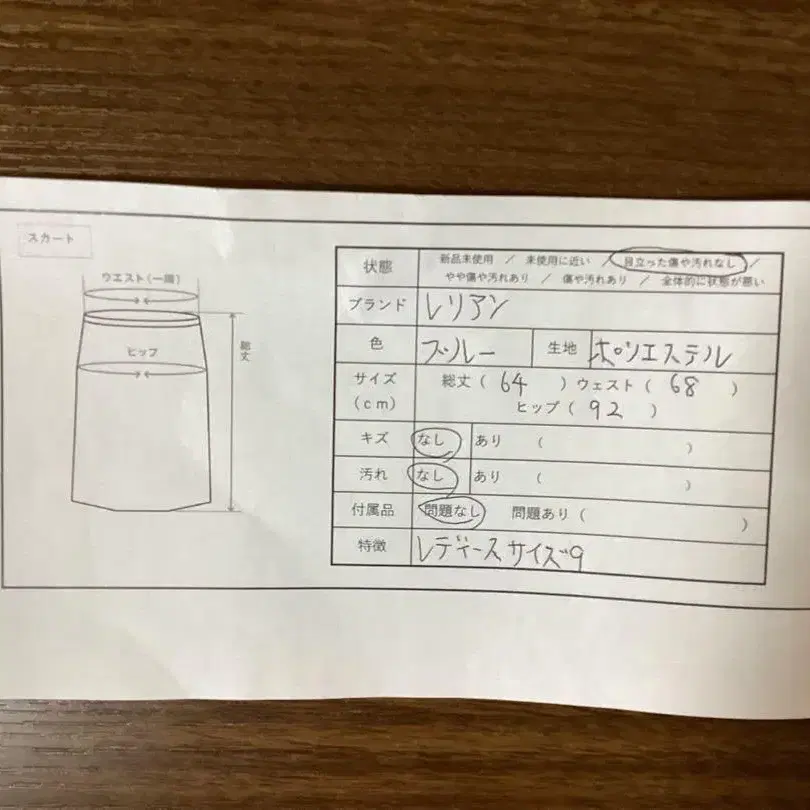 スカート
ウエスト(一周)
ヒップ
総丈
状態 新品未使用 / 未使用に近い / 目立った傷や汚れなし /
やや傷や汚れあり / 傷や汚れあり / 全体的に状態が悪い
ブランド レリアン
色 ブルー 生地 ポリエステル
サイズ 総丈( 64 )ウェスト( 68 )
(cm) ヒップ( 92 )
キズ なし あり ( )
汚れ なし あり ( )
付属品 問題なし 問題あり( )
特徴 レディースサイズ9